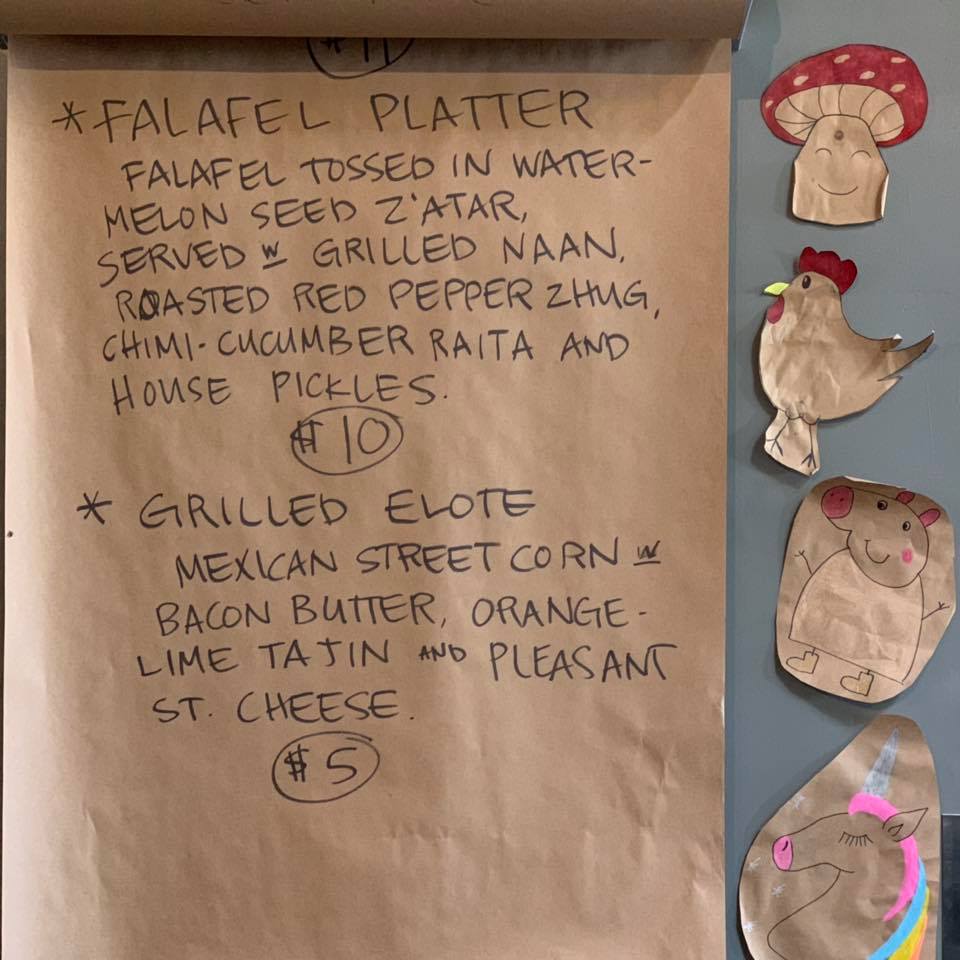 $11
*FALAFEL PLATTER
FALAFEL TOSSED IN WATER-
MELON SEED Z'ATAR,
SERVED W GRILLED NAAN,
ROASTED RED PEPPER ZHUG,
CHIMI-CUCUMBER RAITA AND
HOUSE PICKLES.
$10
* GRILLED ELOTE
MEXICAN STREET CORN W
BACON BUTTER, ORANGE-
LIME TAJIN AND PLEASANT
ST. CHEESE.
$5